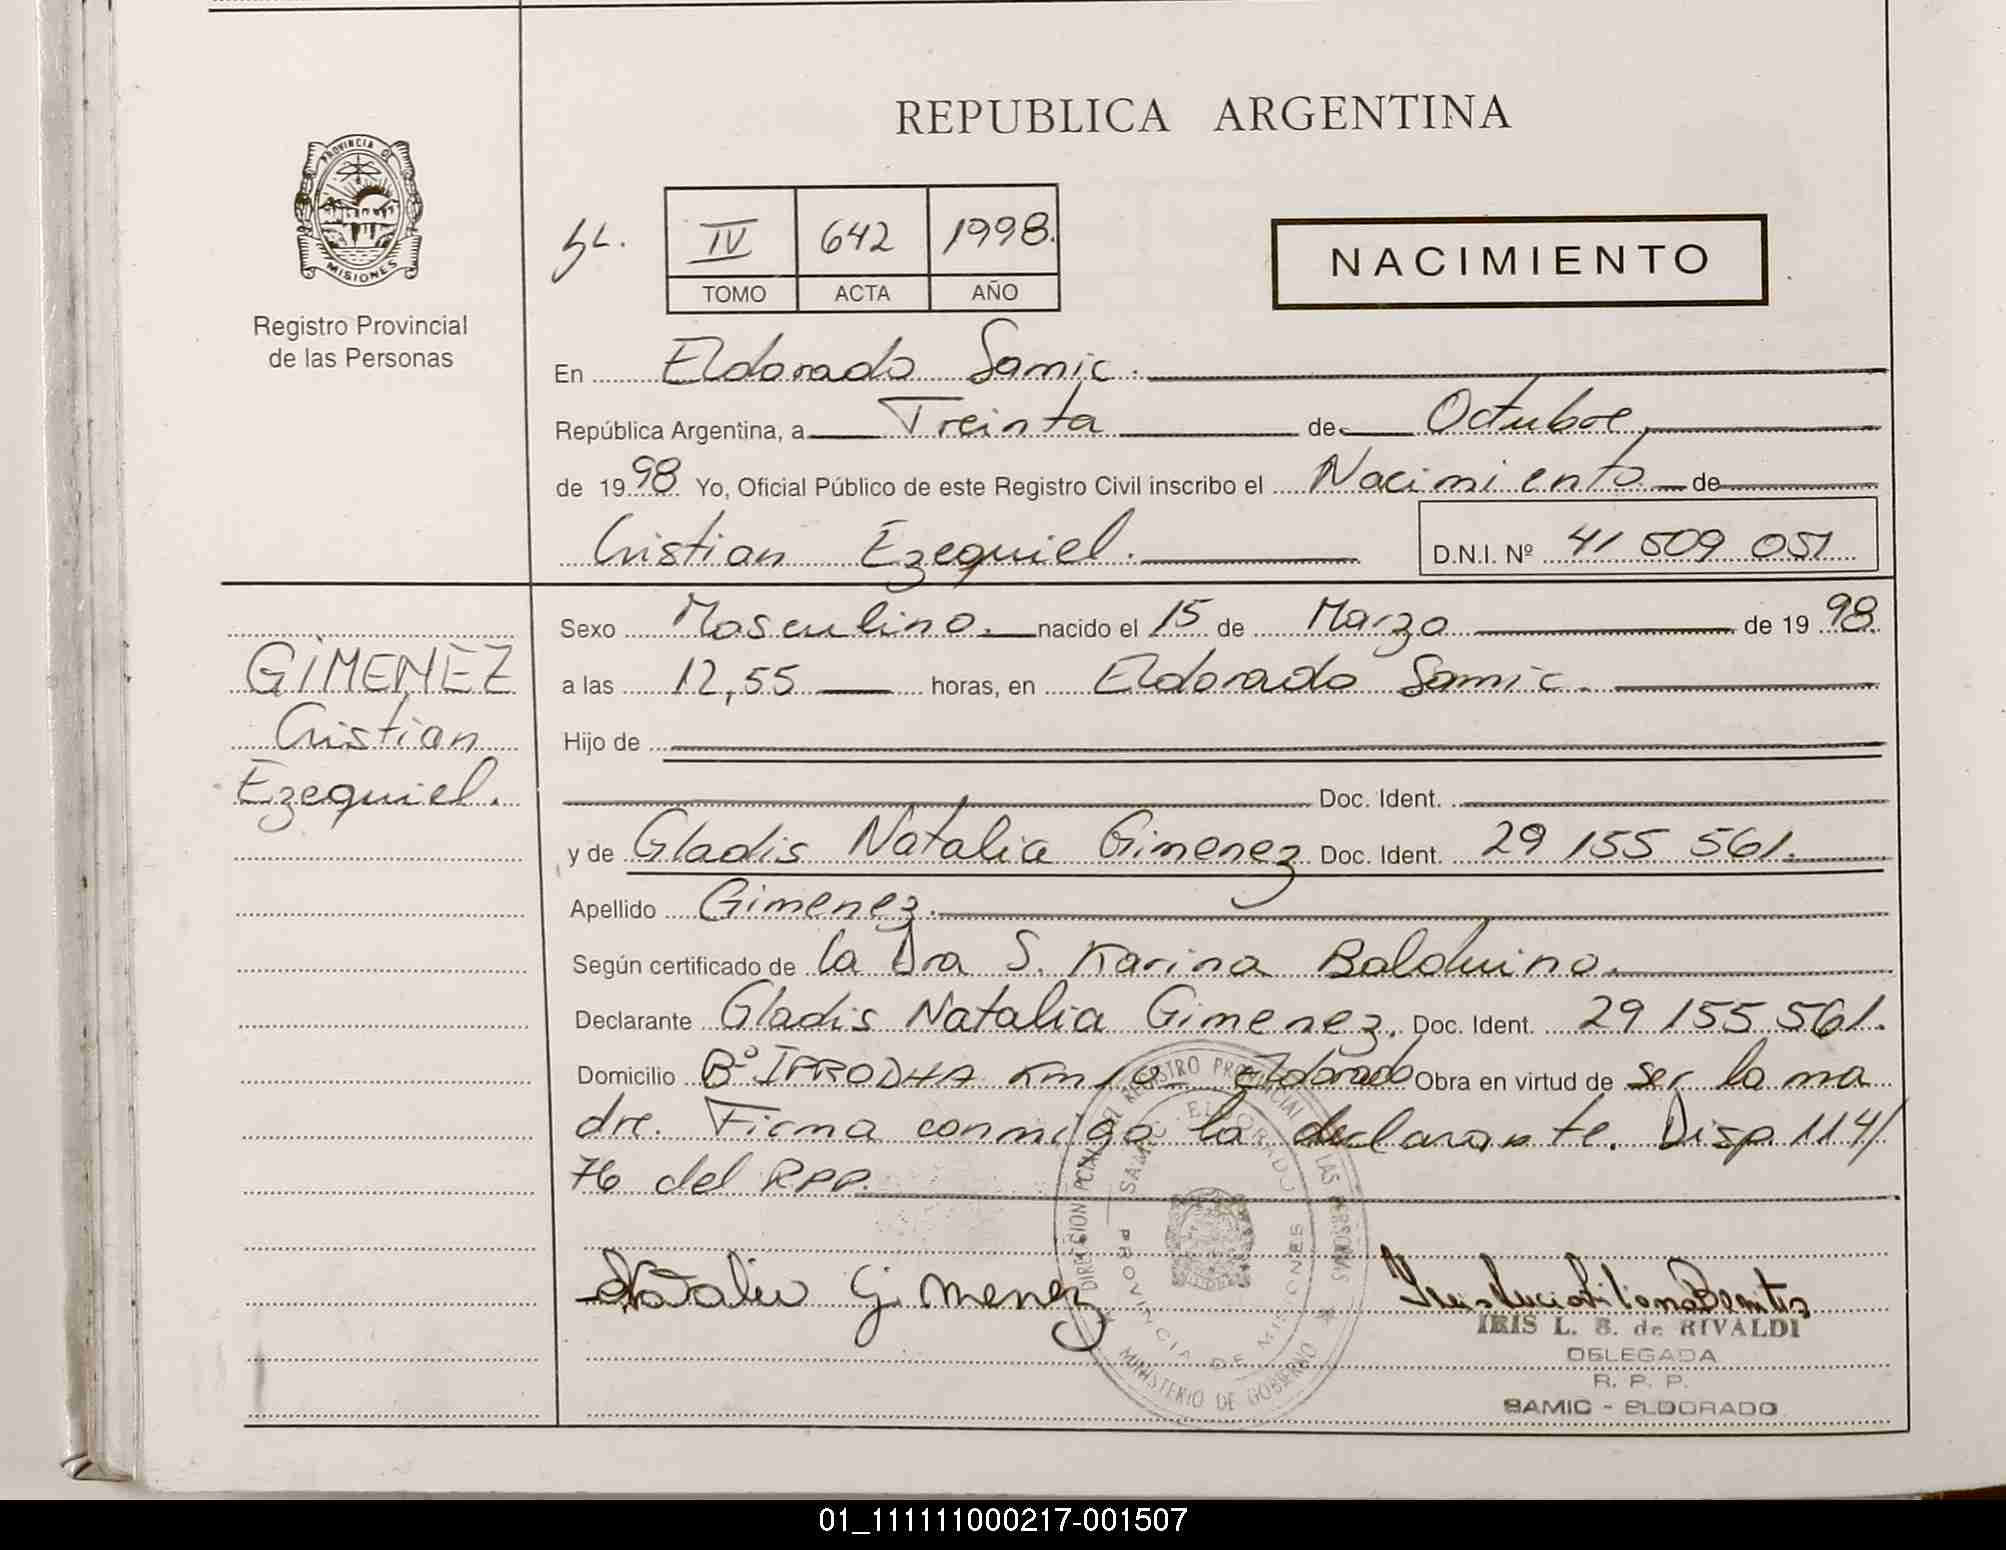 REPUBLICA ARGENTINA
PROVINCIA DE
MISIONES
Registro Provincial
de las Personas
IV 642 1998.
TOMO ACTA AÑO
NACIMIENTO
En Eldorado Samic.
República Argentina, a Treinta de Octubre
de 1998 Yo, Oficial Público de este Registro Civil inscribo el Nacimiento de
Cristian Ezequiel. D.N.I. Nº 41 509 051
GIMENEZ
Cristian
Ezequiel.
Sexo Masculino. nacido el 15 de Marzo de 1998.
a las 12,55 horas, en Eldorado Samic.
Hijo de
Doc. Ident.
y de Gladis Natalia Gimenez Doc. Ident. 29 155 561.
Apellido Gimenez.
Según certificado de la Dra S. Karina Balduino.
Declarante Gladis Natalia Gimenez. Doc. Ident. 29 155 561.
Domicilio Bº IPRODHA Km 10 Eldorado Obra en virtud de ser la ma
dre. Firma conmigo la declarante. Disp 114/
76 del RPP.
DIRECCION PCIAL DEL REGISTRO PROVINCIAL DE LAS PERSONAS
SAMIC ELDORADO
PROVINCIA DE MISIONES
MINISTERIO DE GOBIERNO
Natalia Gimenez
IRIS L. B. de RIVALDI
DELEGADA
R. P. P.
SAMIC - ELDORADO
01_111111000217-001507